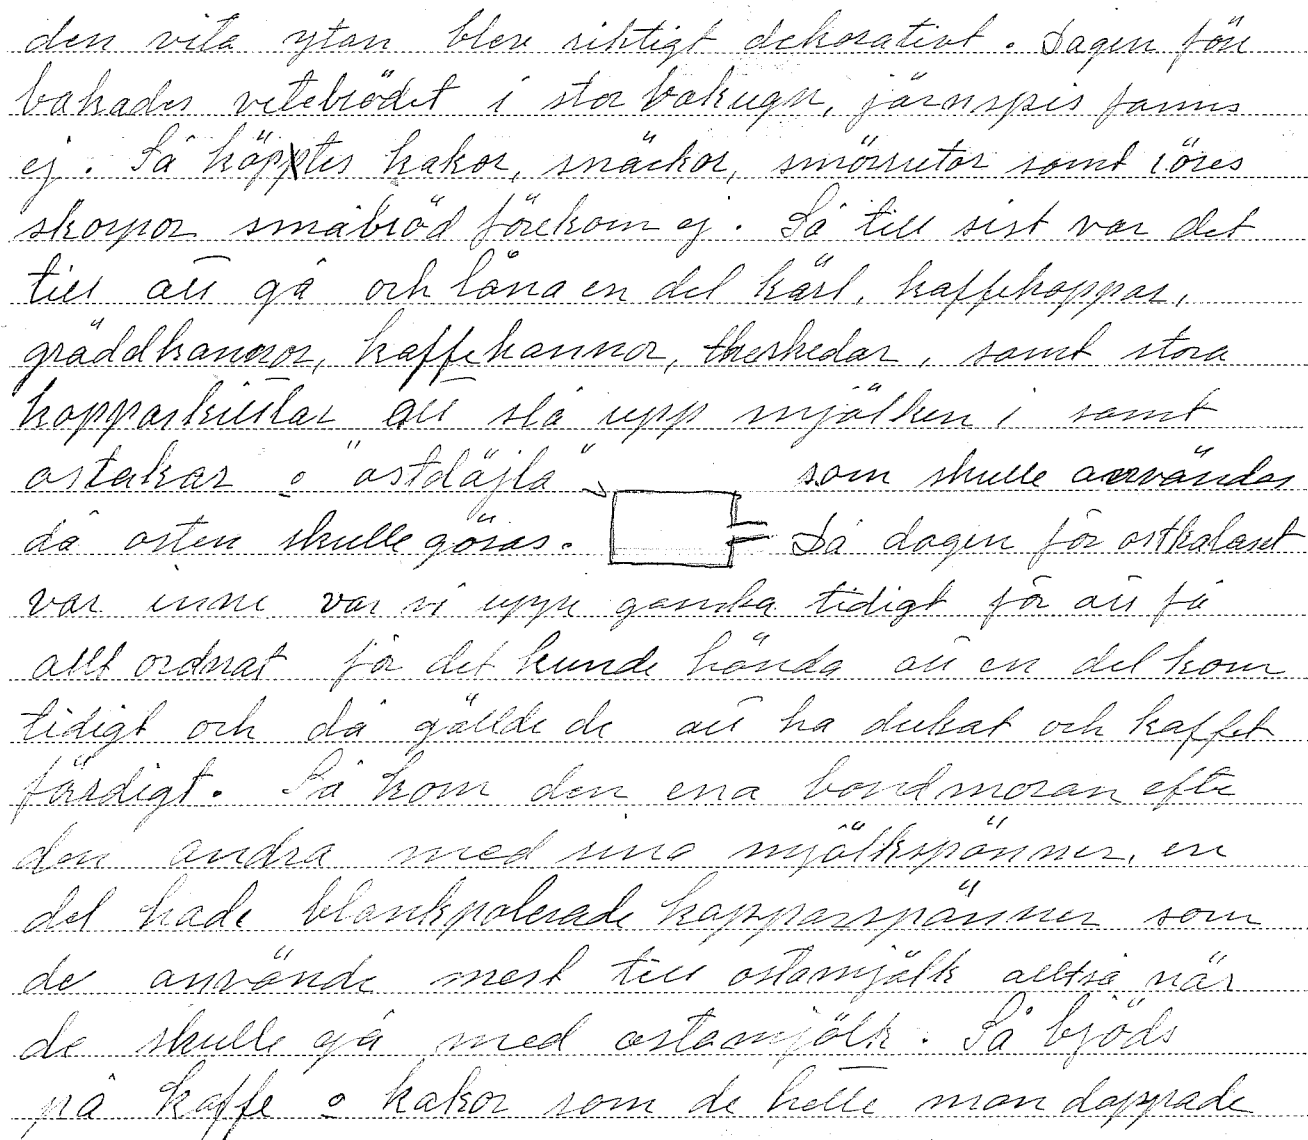 den vita ytan blev riktigt dekorativt. Dagen före
bakades vetebrödet i stor bakugn, järnspis fanns
ej. Så köptes kakor, snäckor, smörrutor samt 1 öres
skorpor småbröd förekom ej. Så till sist var det
till att gå och låna en del kärl, kaffekoppar,
gräddkannor, kaffekannor, theskedar, samt stora
kopparkittlar att slå upp mjölken i samt
ostakar o "ostdäjla" som skulle användas
då osten skulle göras. Så dagen för ostkalaset
var inne var vi uppe ganska tidigt för att få
allt ordnat för det kunde hända att en del kom
tidigt och då gällde de att ha dukat och kaffet
färdigt. Så kom den ena bondmoran efte
den andra med sina mjölkspänner, en
del hade blankpolerade kopparspänner som
de använde mest till ostamjölk alltså när
de skulle gå med ostamjölk. Så bjöds
på kaffe o kakor som de hette man doppade